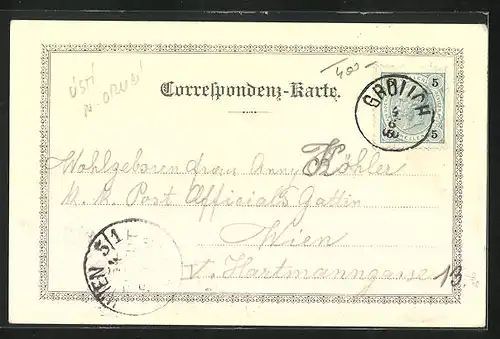 ÚSTÍ
N. ORLICÍ
400
5
5
Correspondenz-Karte.
GRÖLICH
Wohlgeboren Frau Anny Köhler
K. K. Post Officials Gattin
Wien
V. Hartmanngasse 13.
WIEN 5/1